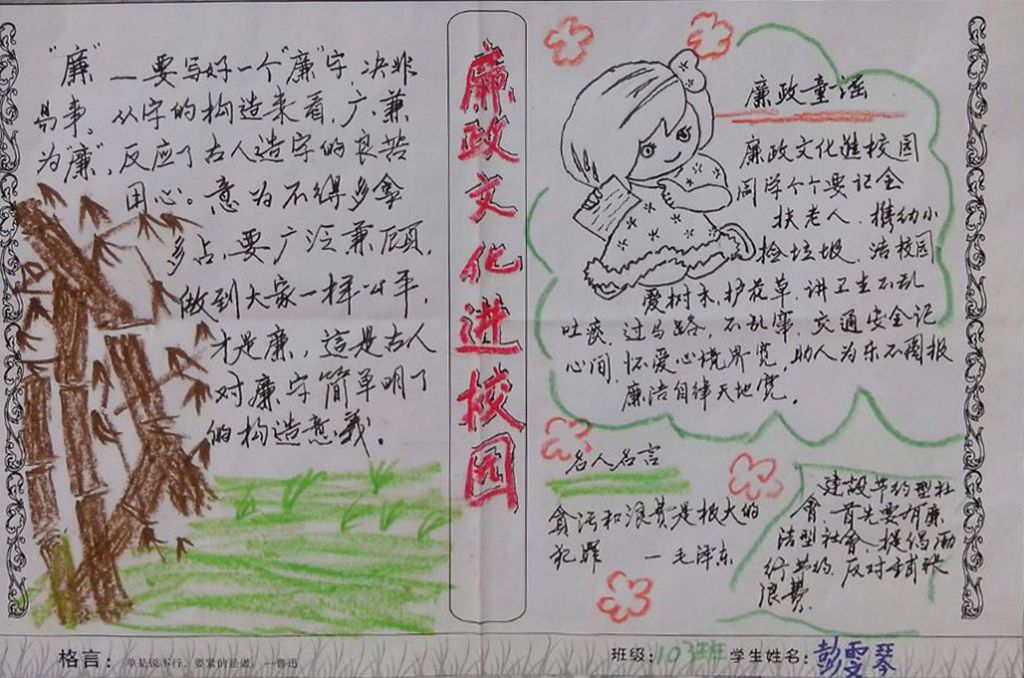 “廉”—要写好一个“廉”字,决非
易事。从字的构造来看,广、兼
为“廉”,反应了古人造字的良苦
用心。意为不得多拿
多占,要广泛兼顾,
做到大家一样公平,
才是廉,這是古人
对廉字简单明了
的构造意義。
廉政文化进校园
廉政童谣
廉政文化進校园
同学个个要记全
扶老人、携幼小
捡垃圾、洁校园
爱树木,护花草,讲卫生不乱
吐痰,过马路,不乱穿,交通安全记
心间,怀爱心境界宽,助人为乐不图报
廉洁自律天地宽。
名人名言
貪污和浪费是极大的
犯罪 —毛泽东
建設节约型社
會 首先要有廉
洁型社會,提倡
行节约,反对铺张
浪费.
格言:单是说不行,要紧的是做。—鲁迅
班级:103班 学生姓名:彭雯琴